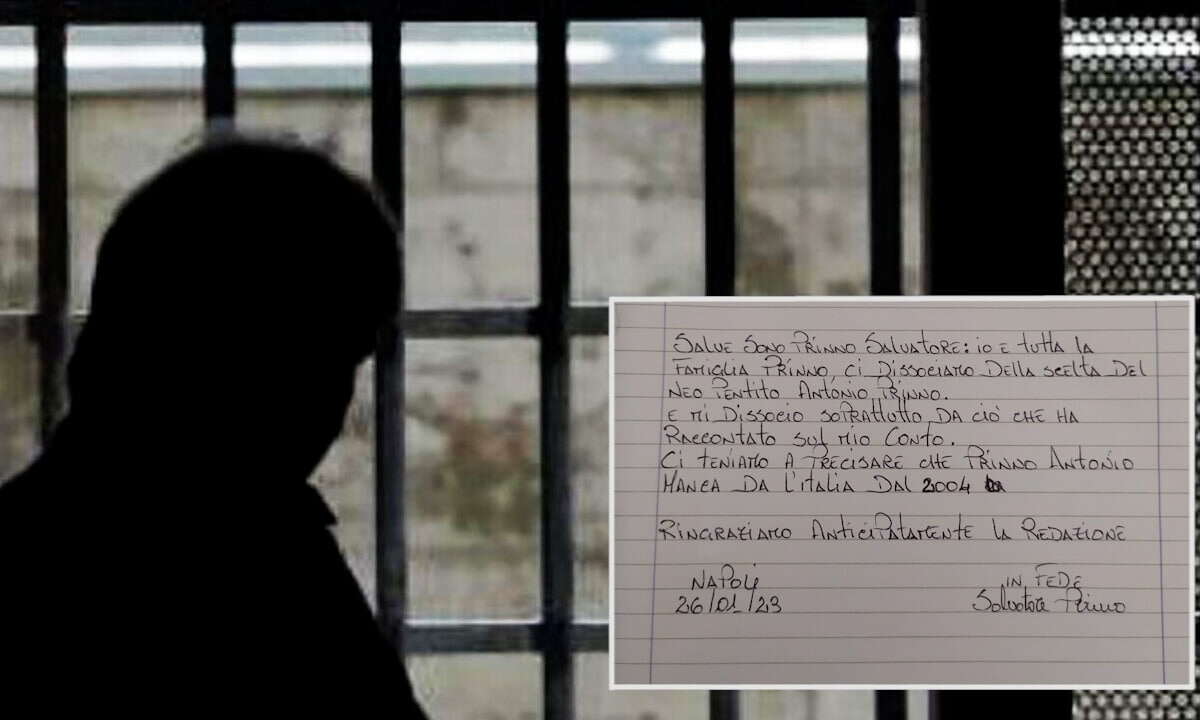 SALVE SONO PRINNO SALVATORE: IO E TUTTA LA
FAMIGLIA PRINNO, CI DISSOCIAMO DELLA SCELTA DEL
NEO PENTITO ANTONIO PRINNO.
E MI DISSOCIO SOPRATTUTTO DA CIÒ CHE HA
RACCONTATO SUL MIO CONTO.
CI TENIAMO A PRECISARE CHE PRINNO ANTONIO
MANCA DA L'ITALIA DAL 2004
RINGRAZIAMO ANTICIPATAMENTE LA REDAZIONE
NAPOLI
IN FEDE
26/01/23
Salvatore Prinno